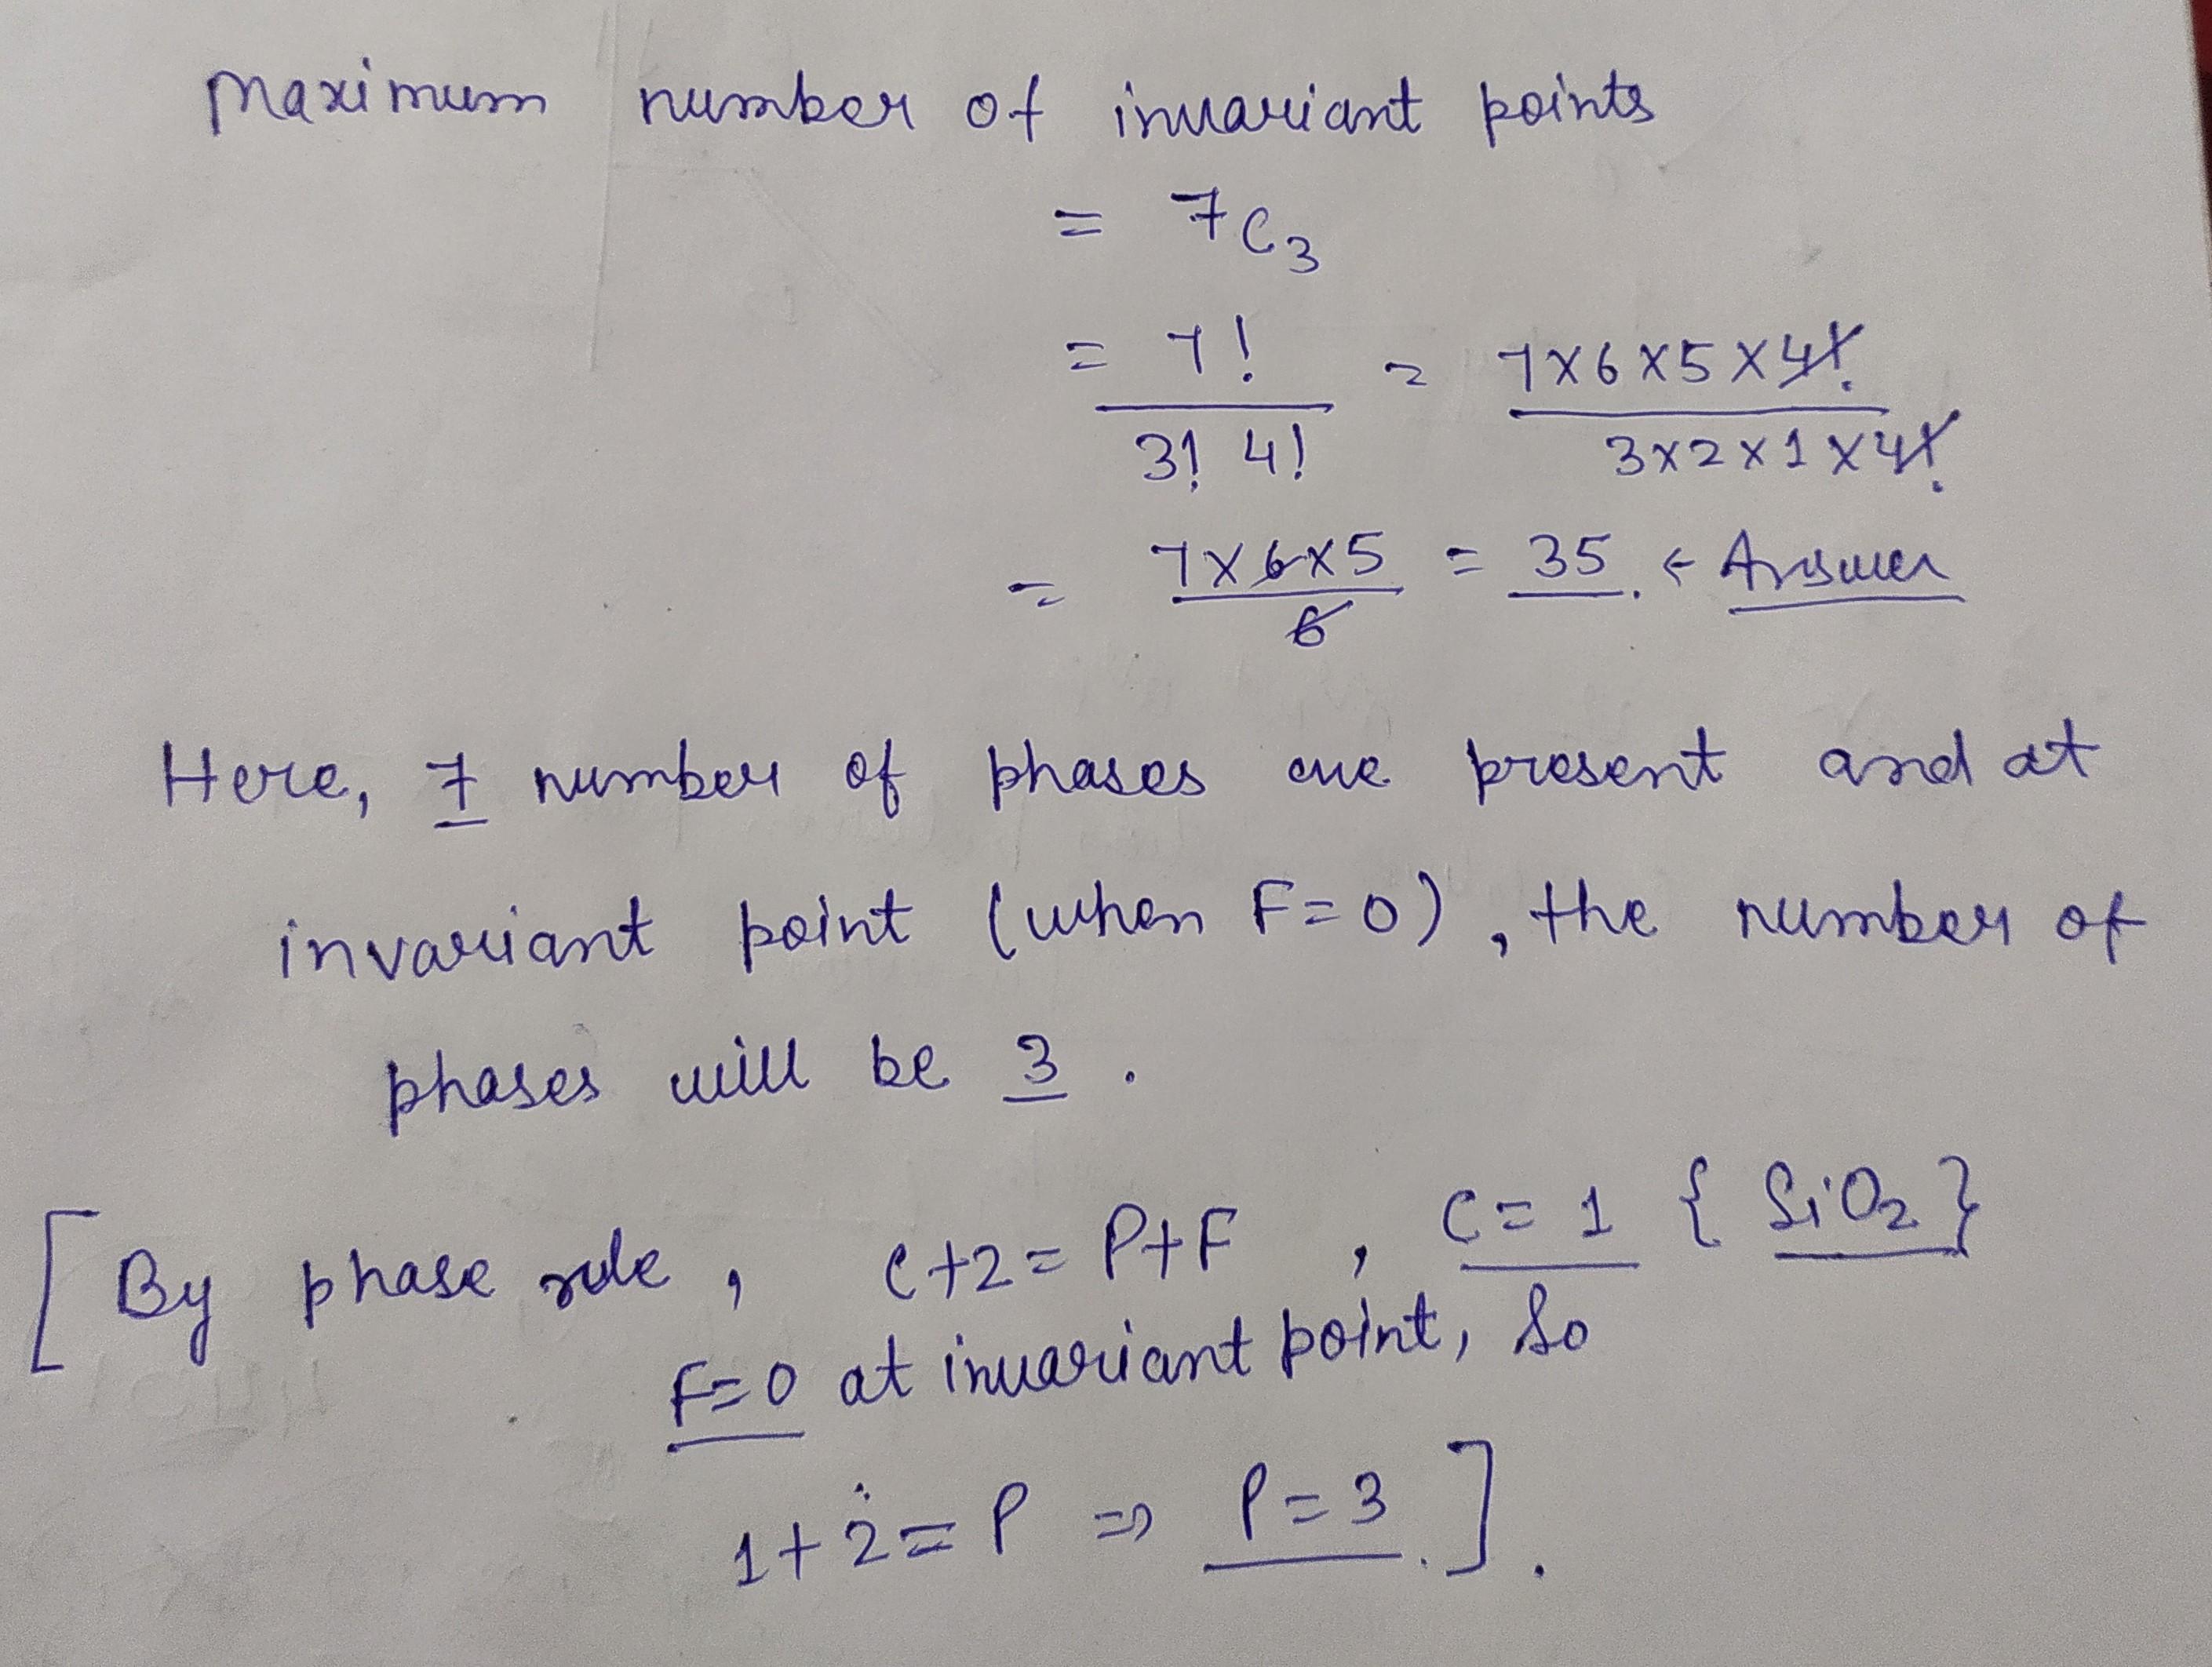 Maximum number of invariant points
= 7C3
= 7! / 3! 4! = 7×6×5×4! / 3×2×1×4!
= 7×6×5 / 6 = 35. ← Answer
Here, 7 number of phases are present and at
invariant point (when F=0), the number of
phases will be 3.
[By phase rule, C+2= P+F, C=1 {SiO2}
F=0 at invariant point, So
1+2=P ⇒ P=3.].